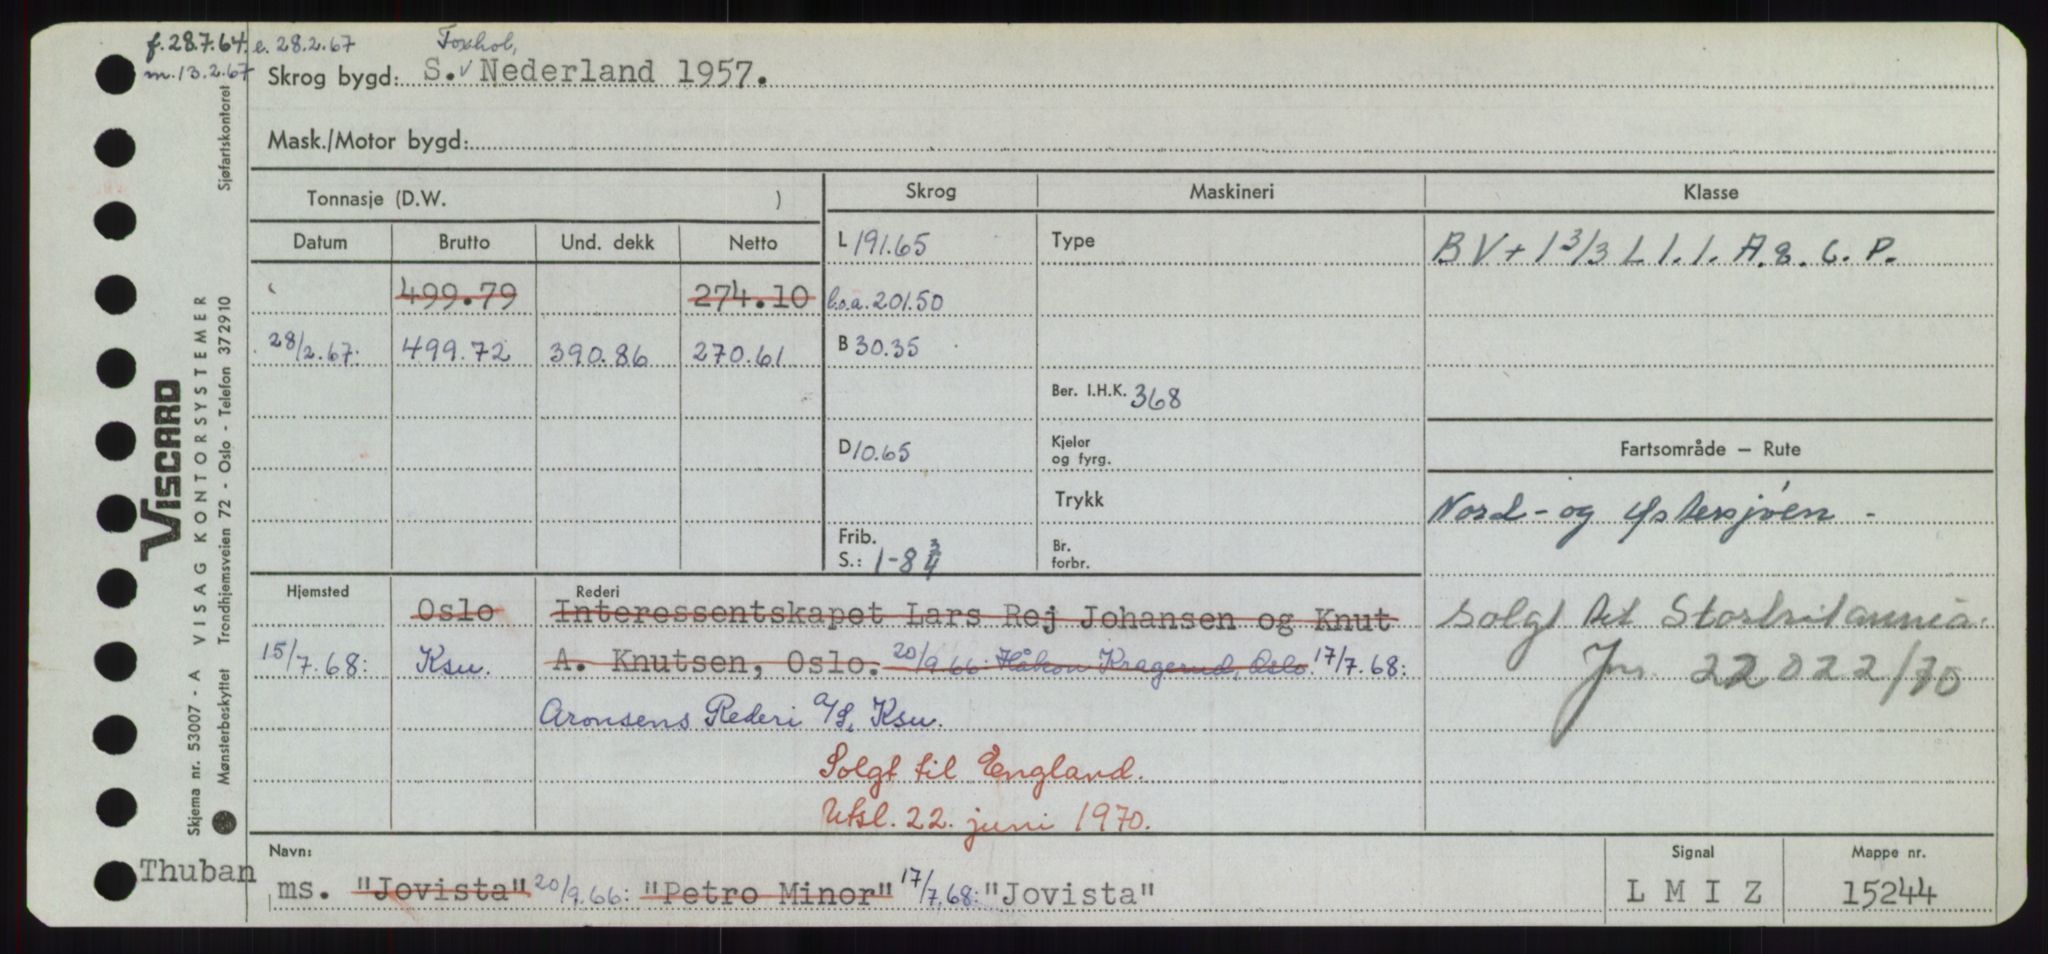 f. 28.7.64. e. 28.2.67 Foxhol,
m. 13.2.67 Skrog bygd: S. v Nederland 1957.
Mask./Motor bygd:
Tonnasje (D.W. ) Skrog Maskineri Klasse
Datum Brutto Und. dekk Netto L 191.65 Type BV + 1 3/3 L 1.1. A. & C. P.
499.79 274.10 l.o.a. 201.50
28/2.67. 499.72 390.86 270.61 B 30.35
Ber. I.H.K. 368
D 10.65 Kjeler og fyrg. Fartsområde — Rute
Trykk Nord- og Østersjøen -
Frib. S.: 1-8 3/4 Br. forbr.
Hjemsted Rederi
Oslo Interessentskapet Lars Rej Johansen og Knut solgt til Storbritannia.
15/7.68: Ksu. A. Knutsen, Oslo. 20/9.66: Håkon Kragerud, Oslo. 17/7.68: Jnr. 22022/70
Aronsens Rederi A/S, Ksu.
Solgt til England.
Utsl. 22. juni 1970.
Navn: Signal Mappe nr.
Thuban
ms. "Jovista" 20/9.66: "Petro Minor" 17/7.68: "Jovista" L M I Z 15244
VISCARD
Skjema nr. 53007 - A VISAG KONTORSYSTEMER
Mønsterbeskyttet Trondhjemsveien 72 - Oslo - Telefon 372910 Sjøfartskontoret